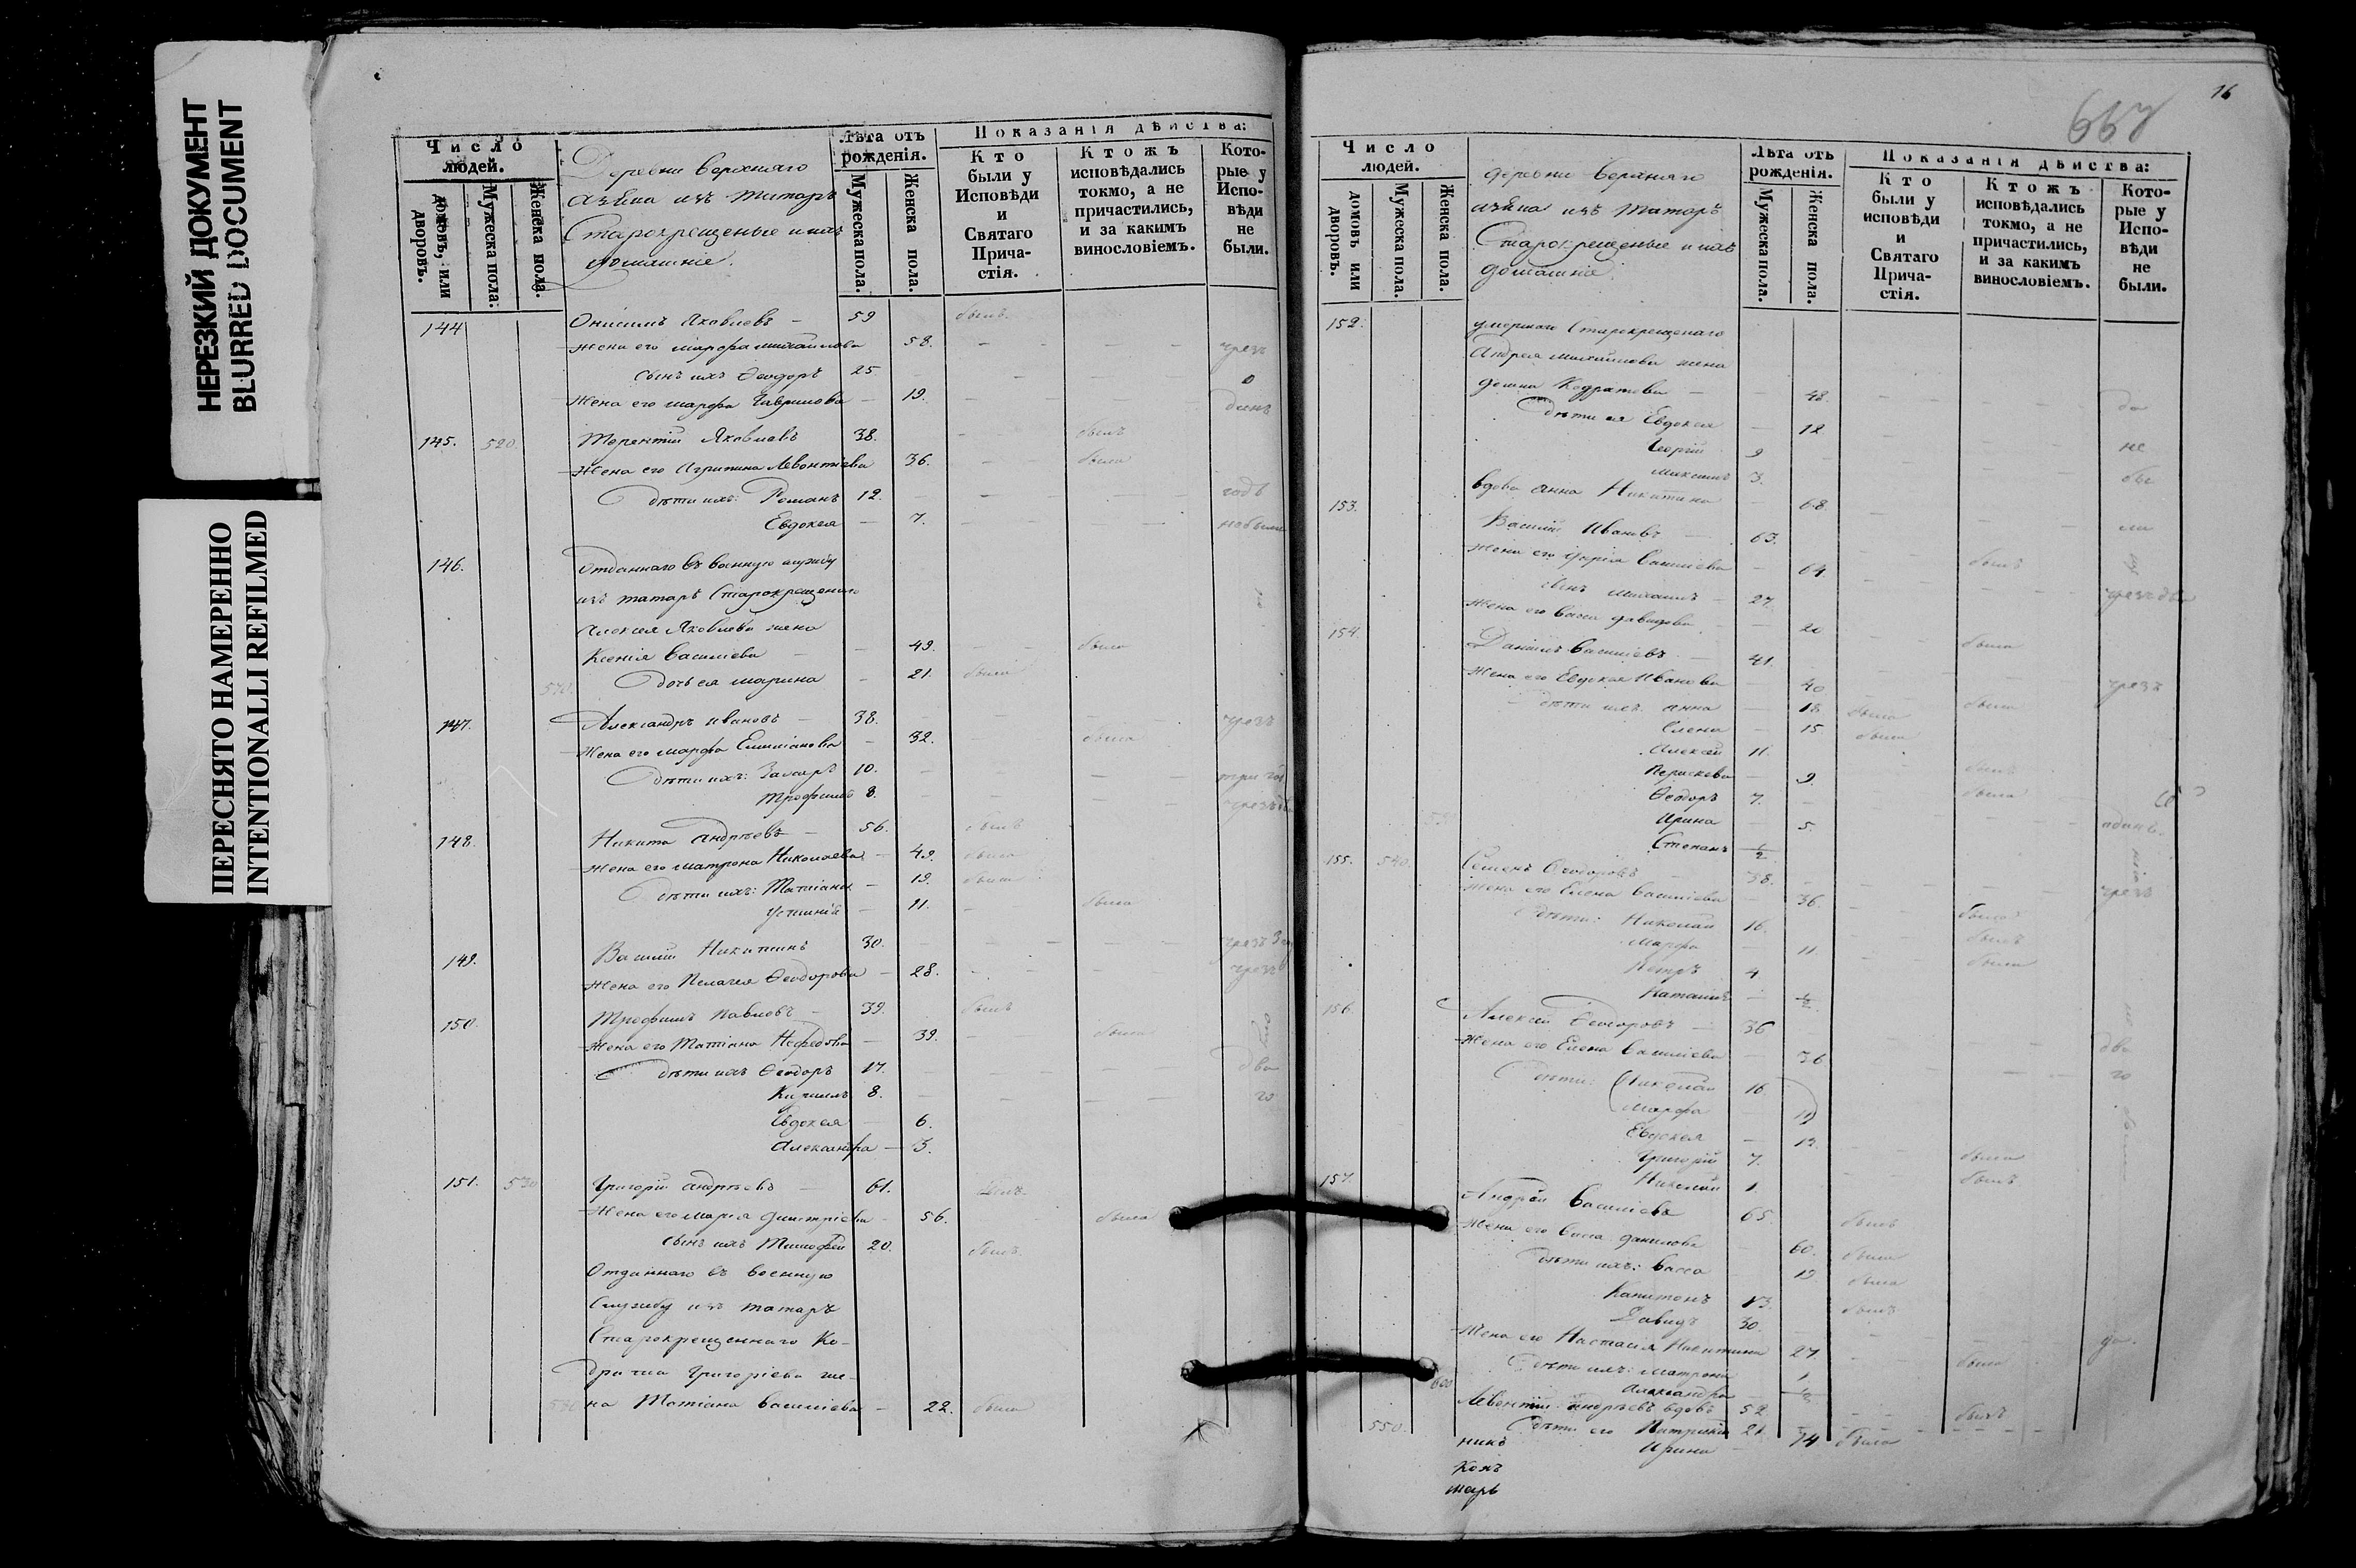 НЕРЕЗКИЙ ДОКУМЕНТ
BLURRED DOCUMENT
ПЕРЕСНЯТО НАМЕРЕННО
INTENTIONALLI REFILMED
Число людей.
домовъ, или дворовъ.
Мужеска пола.
Женска пола.
Деревни Верхняго
Азьяна изъ татаръ
Старокрещеные и ихъ
домашніе.
Лѣта отъ рожденія.
Мужеска пола.
Женска пола.
Показанія дѣйства:
Кто были у Исповѣди и Святаго Прича-стія.
Ктожъ исповѣдались токмо, а не причастились, и за какимъ винословіемъ.
Кото-рые у Испо-вѣди не были.
144 Онисимъ Яковлевъ — 59 былъ
Жена его Марфа Михаилова 58. чрезъ
Сынъ ихъ Ѳеодоръ 25
Жена его Марфа Гаврилова — 19.
145. 520. Терентій Яковлевъ 38. былъ
Жена его Агрипина Левонтіева 36. была
Дѣти ихъ: Романъ 12. годъ
Евдокея — 7. небыли
146. Отданнаго въ военную службу
изъ татаръ Старокрещенаго
Алексея Яковлева жена
Ксенія Василіева — 49. была
Дочь ея Марина — 21. была
147. Александръ Ивановъ — 38. чрезъ
Жена его Марфа Емиліанова — 32. была
Дѣти ихъ: Захаръ 10.
Трофимъ 8.
148. Никита Андреевъ — 56. былъ
Жена его Матрона Николаева — 49. была
Дѣти ихъ: Татіана — 19. была
Устинія — 11. была
149. Василій Никитинъ 30. чрезъ
Жена его Пелагея Ѳеодорова — 28. чрезъ
150. Трофимъ Павловъ — 39. былъ
Жена его Татіана Нефедова — 39. была
Дѣти ихъ Ѳеодоръ 17. два
Кирилъ 8. го
Евдокея — 6.
Александра — 3.
151. 530 Григорій Андреевъ — 61. былъ
Жена его Марія Димитріева 56. была
Сынъ ихъ Тимофей 20. былъ.
Отданнаго въ военную
Службу изъ татаръ
Старокрещеннаго Ко-
дратиа Григоріева же-
на Татіана Василіева — 22. была
16
668
Число людей.
домовъ или дворовъ.
Мужеска пола.
Женска пола.
Деревни Верхняго
Азьяна изъ татаръ
Старокрещеные и ихъ
домашніе
Лѣта отъ рожденія.
Мужеска пола.
Женска пола.
Показанія дѣйства:
Кто были у исповѣди и Святаго Прича-стія.
Ктожъ исповѣдались токмо, а не причастились, и за какимъ винословіемъ.
Кото-рые у Испо-вѣди не были.
152. умершаго Старокрещенаго
Андрея Михайлова жена
Кодратова — 48.
Дѣти ея Евдокея — 12
Георгій 9 не
Максимъ 3.
153. вдова Анна Никитина — 68. ли
Василій Ивановъ — 63.
Жена его Василіева — 64. былъ
Сынъ Михаилъ — 27.
Жена его Васса Давидова — 20
154. Даніилъ Василіевъ — 41. была
Жена его Евдокея Иванова 40 чрезъ
Дѣти ихъ: Анна — 18 была
Елена — 15. была
Алексей 11.
Параскева — 9.
Ѳеодоръ 7.
Ирина — 5. одинъ
Степанъ 1/2
155. 540. Семенъ Ѳеодоровъ — 38.
Жена его Елена Василіева — 36. чрезъ
Дѣти: Николай 16.
Марфа — 11
Петръ 4.
Наталія — 1/2
156. Алексей Ѳеодоровъ — 36
Жена его Елена Василіева — 36 два
Дѣти: (Николай 16. го
Марфа — 11)
Евдокея — 12.
Григорій 7. была
Николай 1. былъ
157. Андрей Василіевъ 65. былъ
Жена его Васса Данилова 60. была
Дѣти ихъ: Васса 19 была
Капитонъ 13. былъ
Давидъ 30.
Жена его Настасія Никитина 27. была
Дѣти ихъ: Матрона 1
600 Александра — 1/2
Левонтій Андреевъ вдовъ 52. былъ
550. Дѣти его 21.
Ирина 14 была